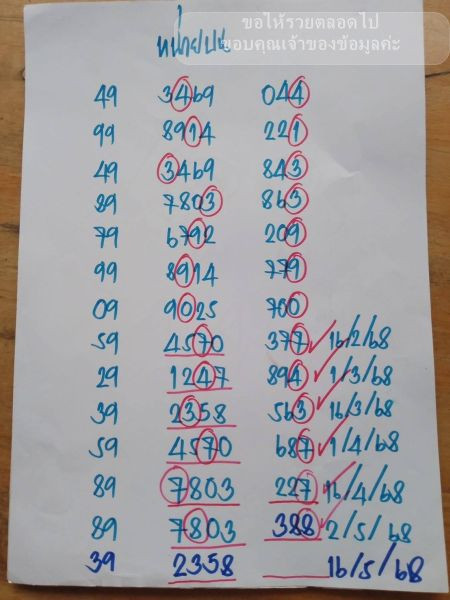 ขอให้รวยตลอดไป
ขอบคุณเจ้าของข้อมูลค่ะ
หน่วยบน
49 3469 044
99 8914 221
49 3469 843
89 7803 863
79 6792 209
99 8914 779
09 9025 760
59 4570 377 16/2/68
29 1247 894 1/3/68
39 2358 563 16/3/68
59 4570 687 1/4/68
89 7803 227 16/4/68
89 7803 388 2/5/68
39 2358 16/5/68